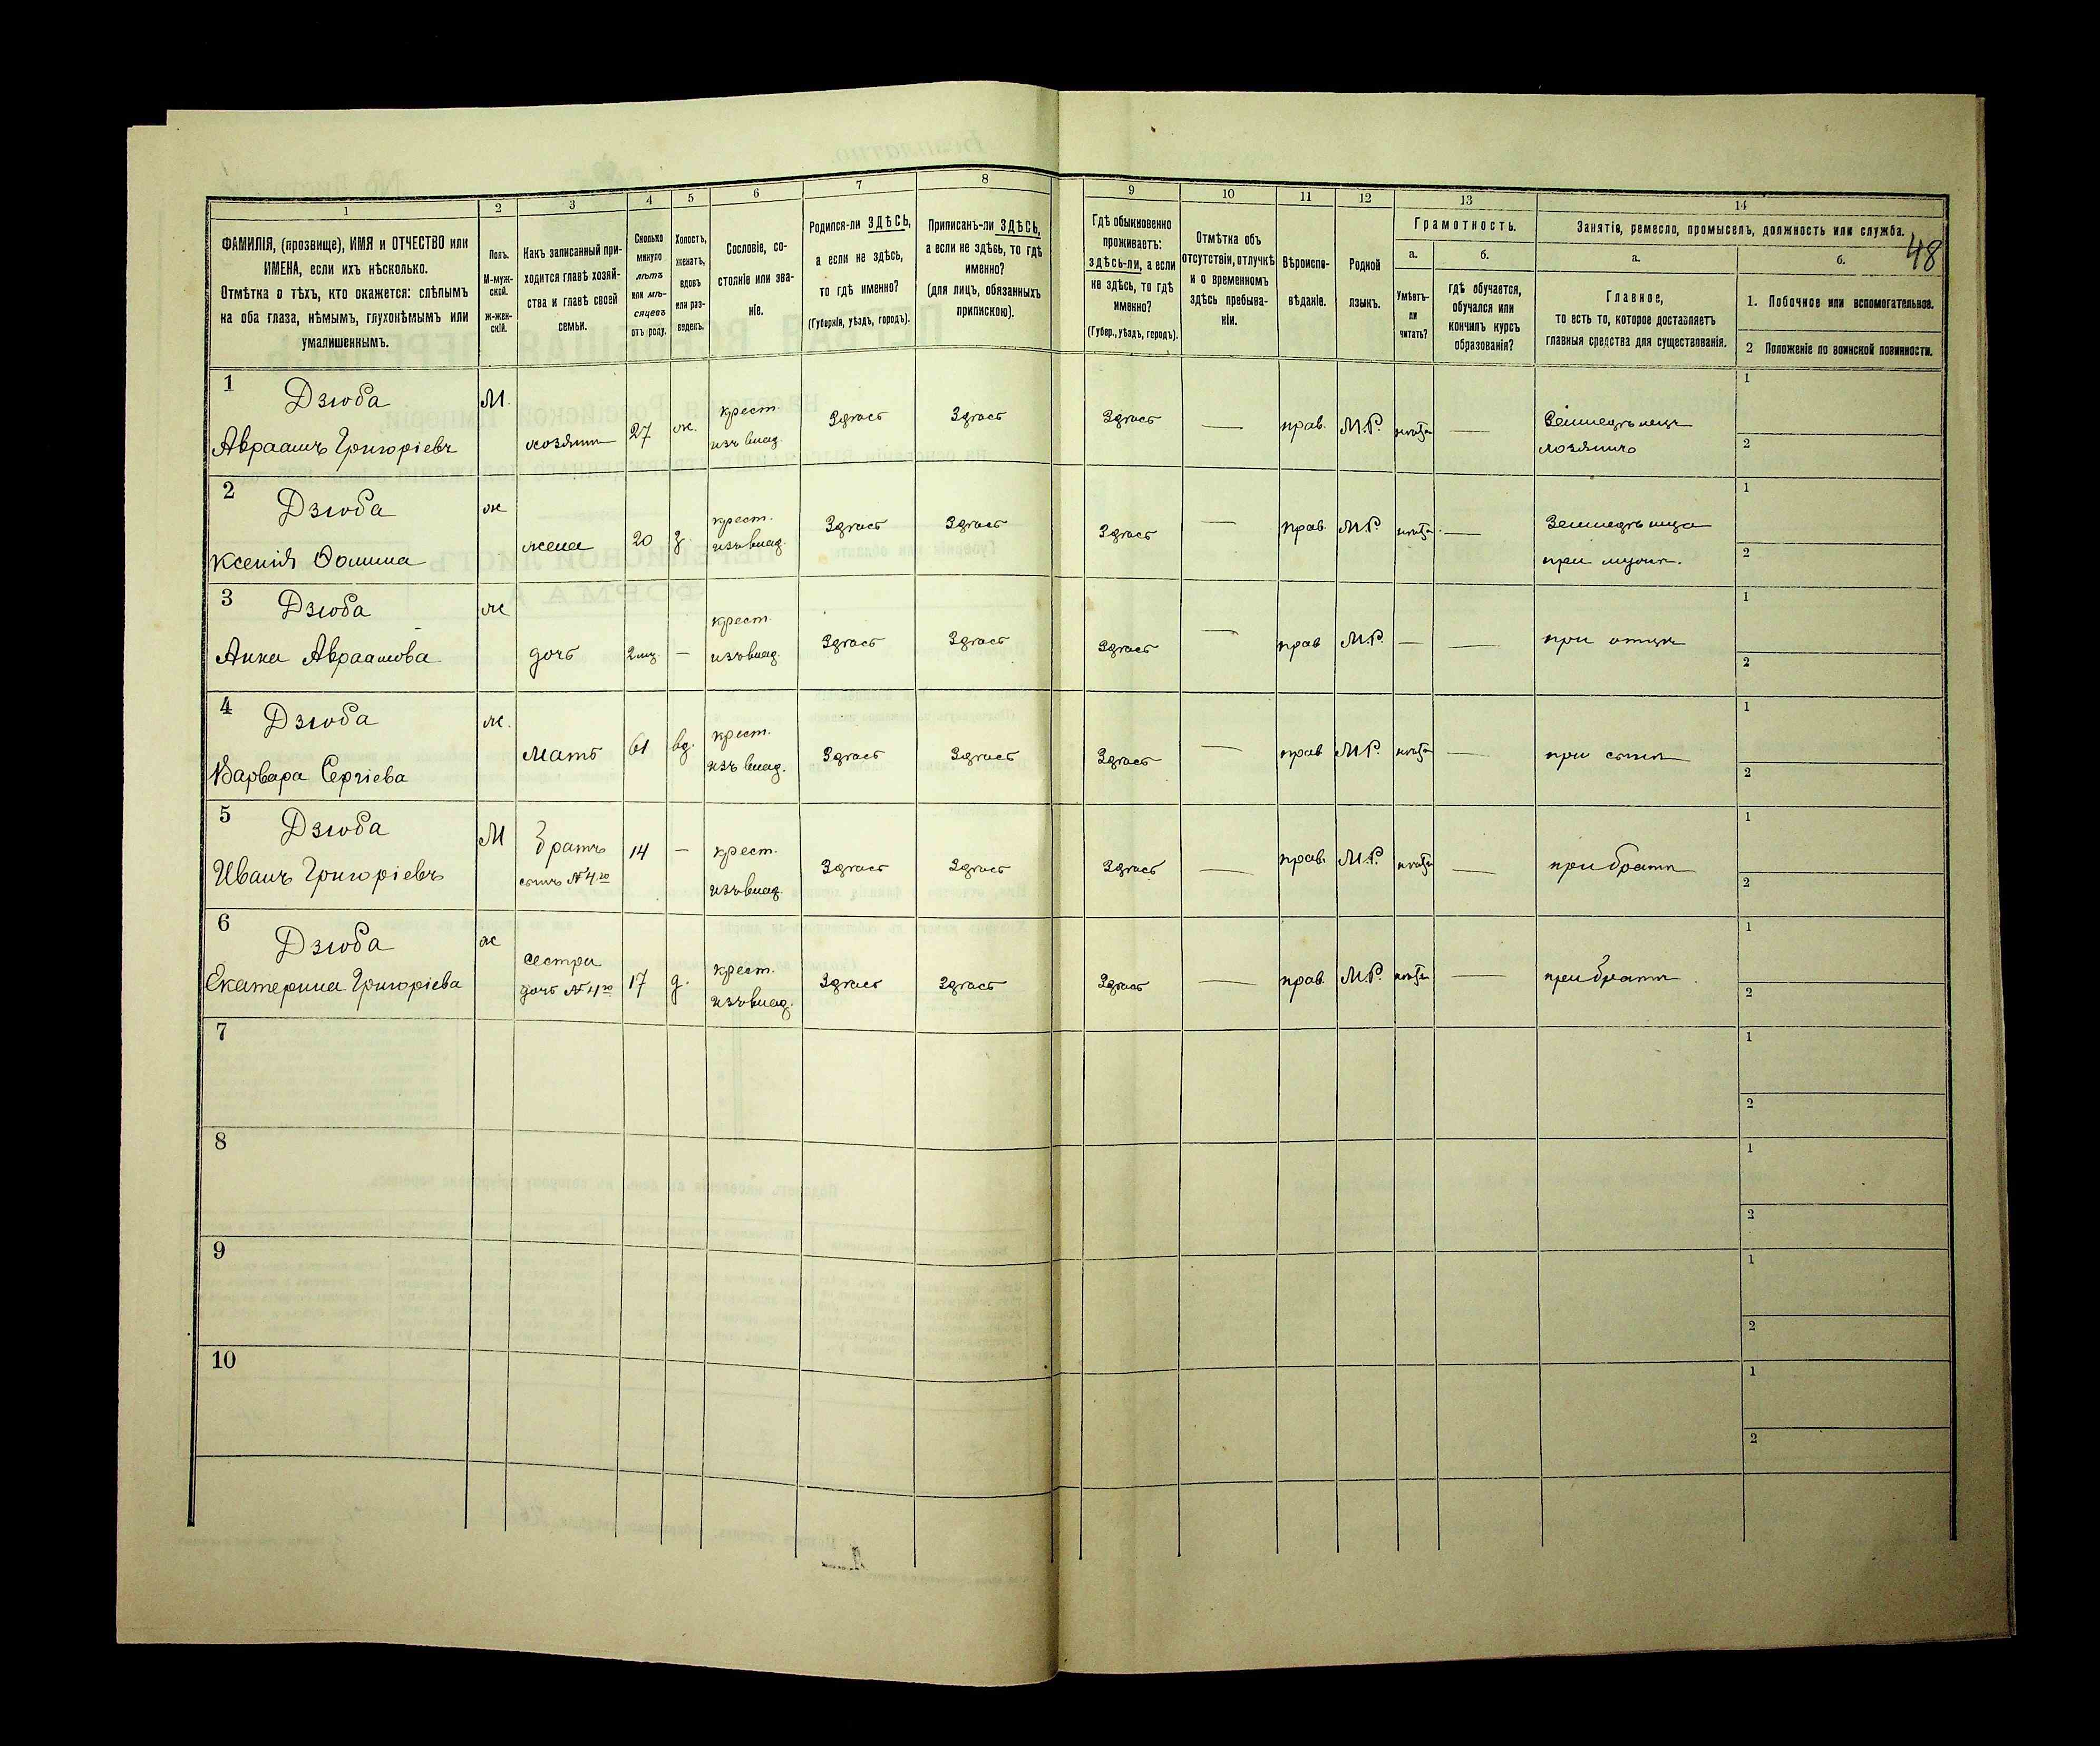 48
1 2 3 4 5 6 7 8 9 10 11 12 13 14
ФАМИЛІЯ, (прозвище), ИМЯ и ОТЧЕСТВО или
ИМЕНА, если ихъ нѣсколько.
Отмѣтка о тѣхъ, кто окажется: слѣпымъ
на оба глаза, нѣмымъ, глухонѣмымъ или
умалишеннымъ.
Полъ.
М-муж-
ской.
Ж-жен-
скій.
Какъ записанный при-
ходится главѣ хозяй-
ства и главѣ своей
семьи.
Сколько
минуло
лѣтъ
или мѣ-
сяцевъ
отъ роду.
Холостъ,
женатъ,
вдовъ
или раз-
веденъ.
Сословіе, со-
стояніе или зва-
ніе.
Родился-ли ЗДѢСЬ,
а если не здѣсь,
то гдѣ именно?
(Губернія, уѣздъ, городъ).
Приписанъ-ли ЗДѢСЬ,
а если не здѣсь, то гдѣ
именно?
(для лицъ, обязанныхъ
припискою).
Гдѣ обыкновенно
проживаетъ:
здѣсь-ли, а если
не здѣсь, то гдѣ
именно?
(Губер., уѣздъ, городъ).
Отмѣтка объ
отсутствіи, отлучкѣ
и о временномъ
здѣсь пребыва-
ніи.
Вѣроиспо-
вѣданіе.
Родной
языкъ.
Грамотность.
а.
Умѣетъ-
ли
читать?
б.
гдѣ обучается,
обучался или
кончилъ курсъ
образованія?
Занятіе, ремесло, промыселъ, должность или служба.
а.
Главное,
то есть то, которое доставляетъ
главныя средства для существованія.
б.
1. Побочное или вспомогательное.
2 Положеніе по воинской повинности.
1 Дзюба М. 1
Авраамъ Григоріевъ хозяинъ 27 ж. крест. изъ влад. Здѣсь Здѣсь Здѣсь — прав. М.Р. нѣтъ — Земледѣлецъ
хозяинъ 2
2 Дзюба ж 1
Ксенія Фомина жена 20 з. крест. изъ влад. Здѣсь Здѣсь Здѣсь — прав. М.Р. нѣтъ — Земледѣлица
при мужѣ. 2
3 Дзюба ж 1
Анна Авраамова дочь 2 мц. — крест. изъ влад. Здѣсь Здѣсь Здѣсь — прав М.Р. — — при отцѣ 2
4 Дзюба ж. 1
Варвара Сергіева Мать 61 вд. крест. изъ влад. Здѣсь Здѣсь Здѣсь — прав М.Р. нѣтъ — при сынѣ 2
5 Дзюба М Братъ 1
Иванъ Григоріевъ сынъ №4го 14 — крест. изъ влад. Здѣсь Здѣсь Здѣсь — прав. М.Р. нѣтъ — при братѣ 2
6 Дзюба ж сестра 1
Екатерина Григоріева дочь №4го 17 д. крест. изъ влад. Здѣсь Здѣсь Здѣсь — прав. М.Р. нѣтъ — при братѣ 2
7 1
2
8 1
2
9 1
2
10 1
2